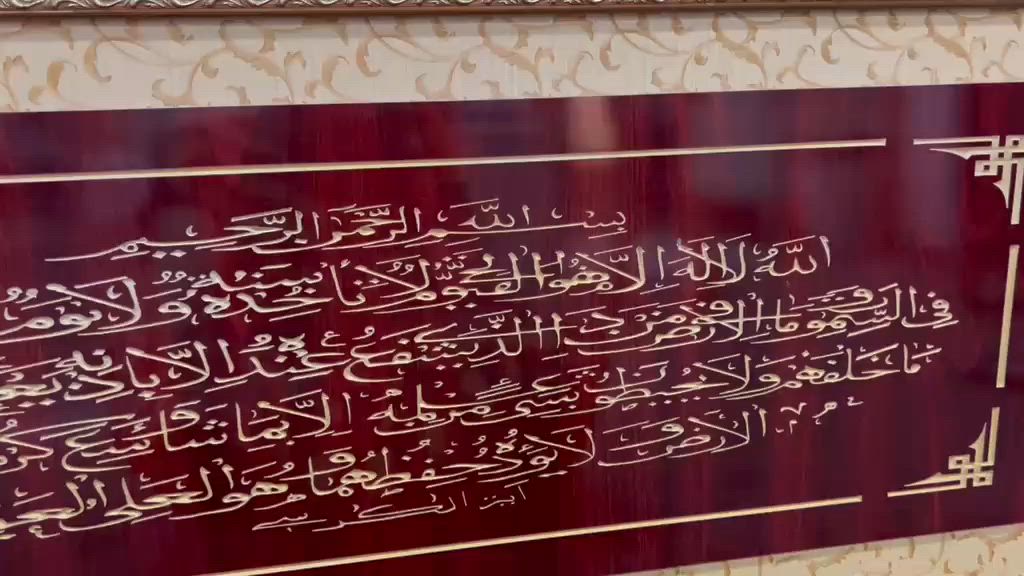 بسم الله الرحمن الرحيم
الله لا اله الا هو الحي القيوم لا تأخذه سنة ولا نوم
في السموات وما في الارض من ذا الذي يشفع عنده الا باذنه
ما خلفهم ولا يحيطون بشيء من علمه الا بما شاء وسع
الارض ولا يؤده حفظهما وهو العلي العظيم
اية الكرسي